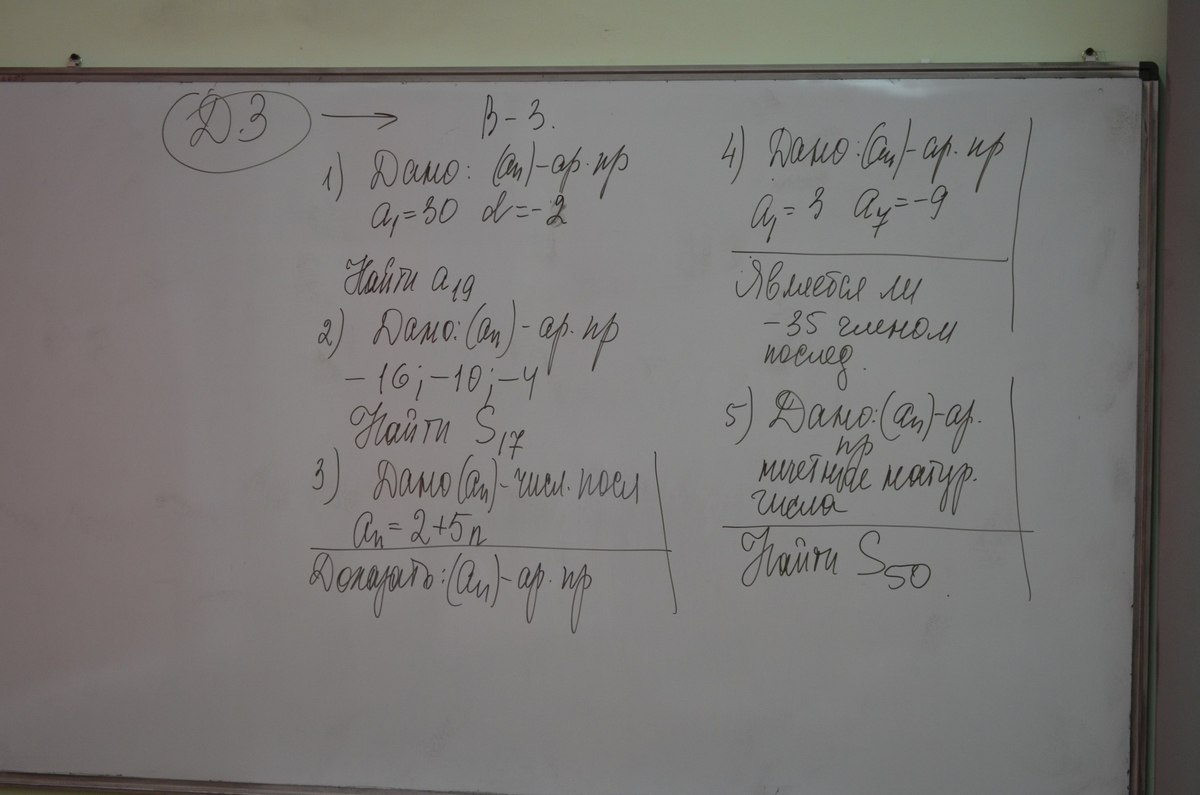 Д.З → В-3.
1) Дано: (an)-ар. пр
a1=30 d=-2
Найти a19
2) Дано:(an)-ар. пр
-16; -10; -4
Найти S17
3) Дано (an)-числ. посл
an=2+5n
Доказать:(an)-ар. пр
4) Дано:(an)-ар. пр
a1=3 a7=-9
Является ли
-35 членом
послед.
5) Дано:(an)-ар.
пр
нечетные натур.
числа
Найти S50.